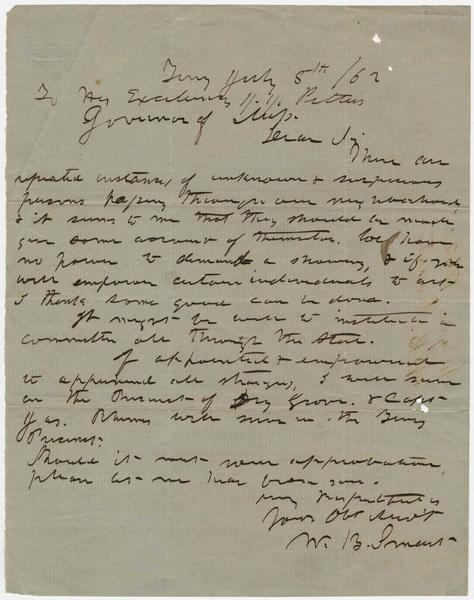 Terry July 8th /62
To His Excellency J. J. Pettus
Governor of Miss.
Dear Sir
There are
repeated instances of unknown & suspicious
persons passing through our neighborhood,
& it seems to me that they should be made
give some account of themselves. We have
no power to demand a showing, & if you
will empower certain individuals to act
I think some good can be done.
It might be well to institute a
committee all through the State.
If appointed & empowered
to apprehend all strangers, I will serve
in the Precinct of Dry Grove. & Capt
Jas. will serve in the Terry
Precinct.
Should it meet your approbation,
please let me hear from you.
Very Respectfully
Your Obt Servt
W. B. Smart